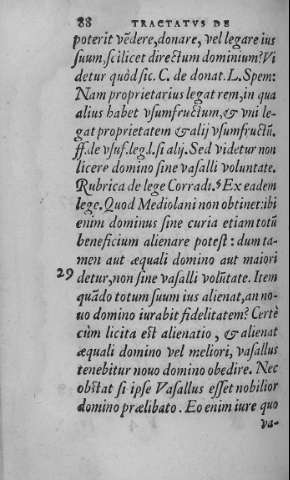 88 TRACTATVS DE
poterit vẽdere, donare, vel legare ius
suum, scilicet directum dominium? Vi
detur quòd sic. C. de donat. L. Spem:
Nam proprietarius legat rem, in qua
alius habet vsumfructum, & vni le-
gat proprietatem & alij vsumfructũ.
ff. de vsuf. leg. l. si alij. Sed videtur non
licere domino sine vasalli voluntate.
Rubrica de lege Corradi. § Ex eadem
lege. Quod Mediolani non obtinet: ibi
enim dominus sine curia etiam totũ
beneficium alienare potest: dum ta-
men aut æquali domino aut maiori
29 detur, non sine vasalli volũtate. Item
quãdo totum suum ius alienat, an no-
uo domino iurabit fidelitatem? Certè
cùm licita est alienatio, & alienat
æquali domino vel meliori, vasallus
tenebitur nouo domino obedire. Nec
obstat si ipse Vasallus esset nobilior
domino prælibato. Eo enim iure quo
va-